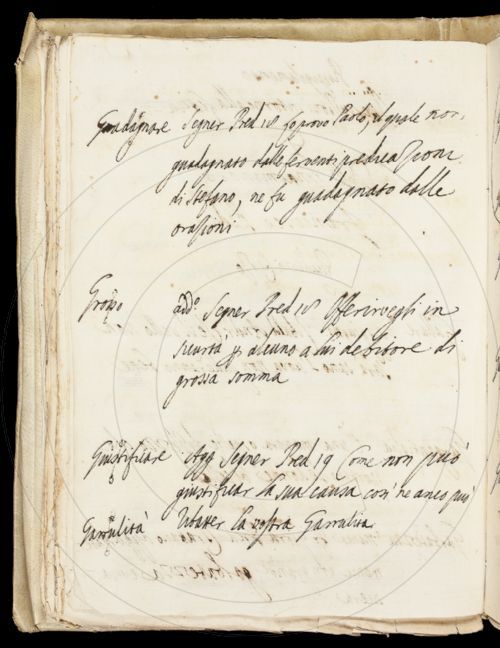 Guadagnare Segner Pred 18 sopravo Paolo, il quale non
guadagnato dalle ferventi predicazioni
di Stefano, ne fu guadagnato dalle
orazioni
Grosso add.º Segner Pred 18 Offerirvegli in
sicurtà p alcuno a lui debitore di
grossa somma
Giustificare Agg Segner Pred 19 Come non può
giustificar la sua causa così ne anco può
Garrulità ribatter la vostra Garrulita